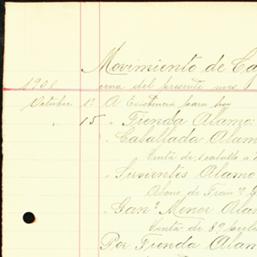 Movimiento de Ca
1901 cina del presente mes
Octubre 1º A Existencia para hoy
" 15 " Tienda Alamo
" Caballada Alam
Venta de 1 caballo a
" Sirvientes Alamo
Abono de Fran
" Ganº Menor Alam
Venta de 8
Por Tienda Alam